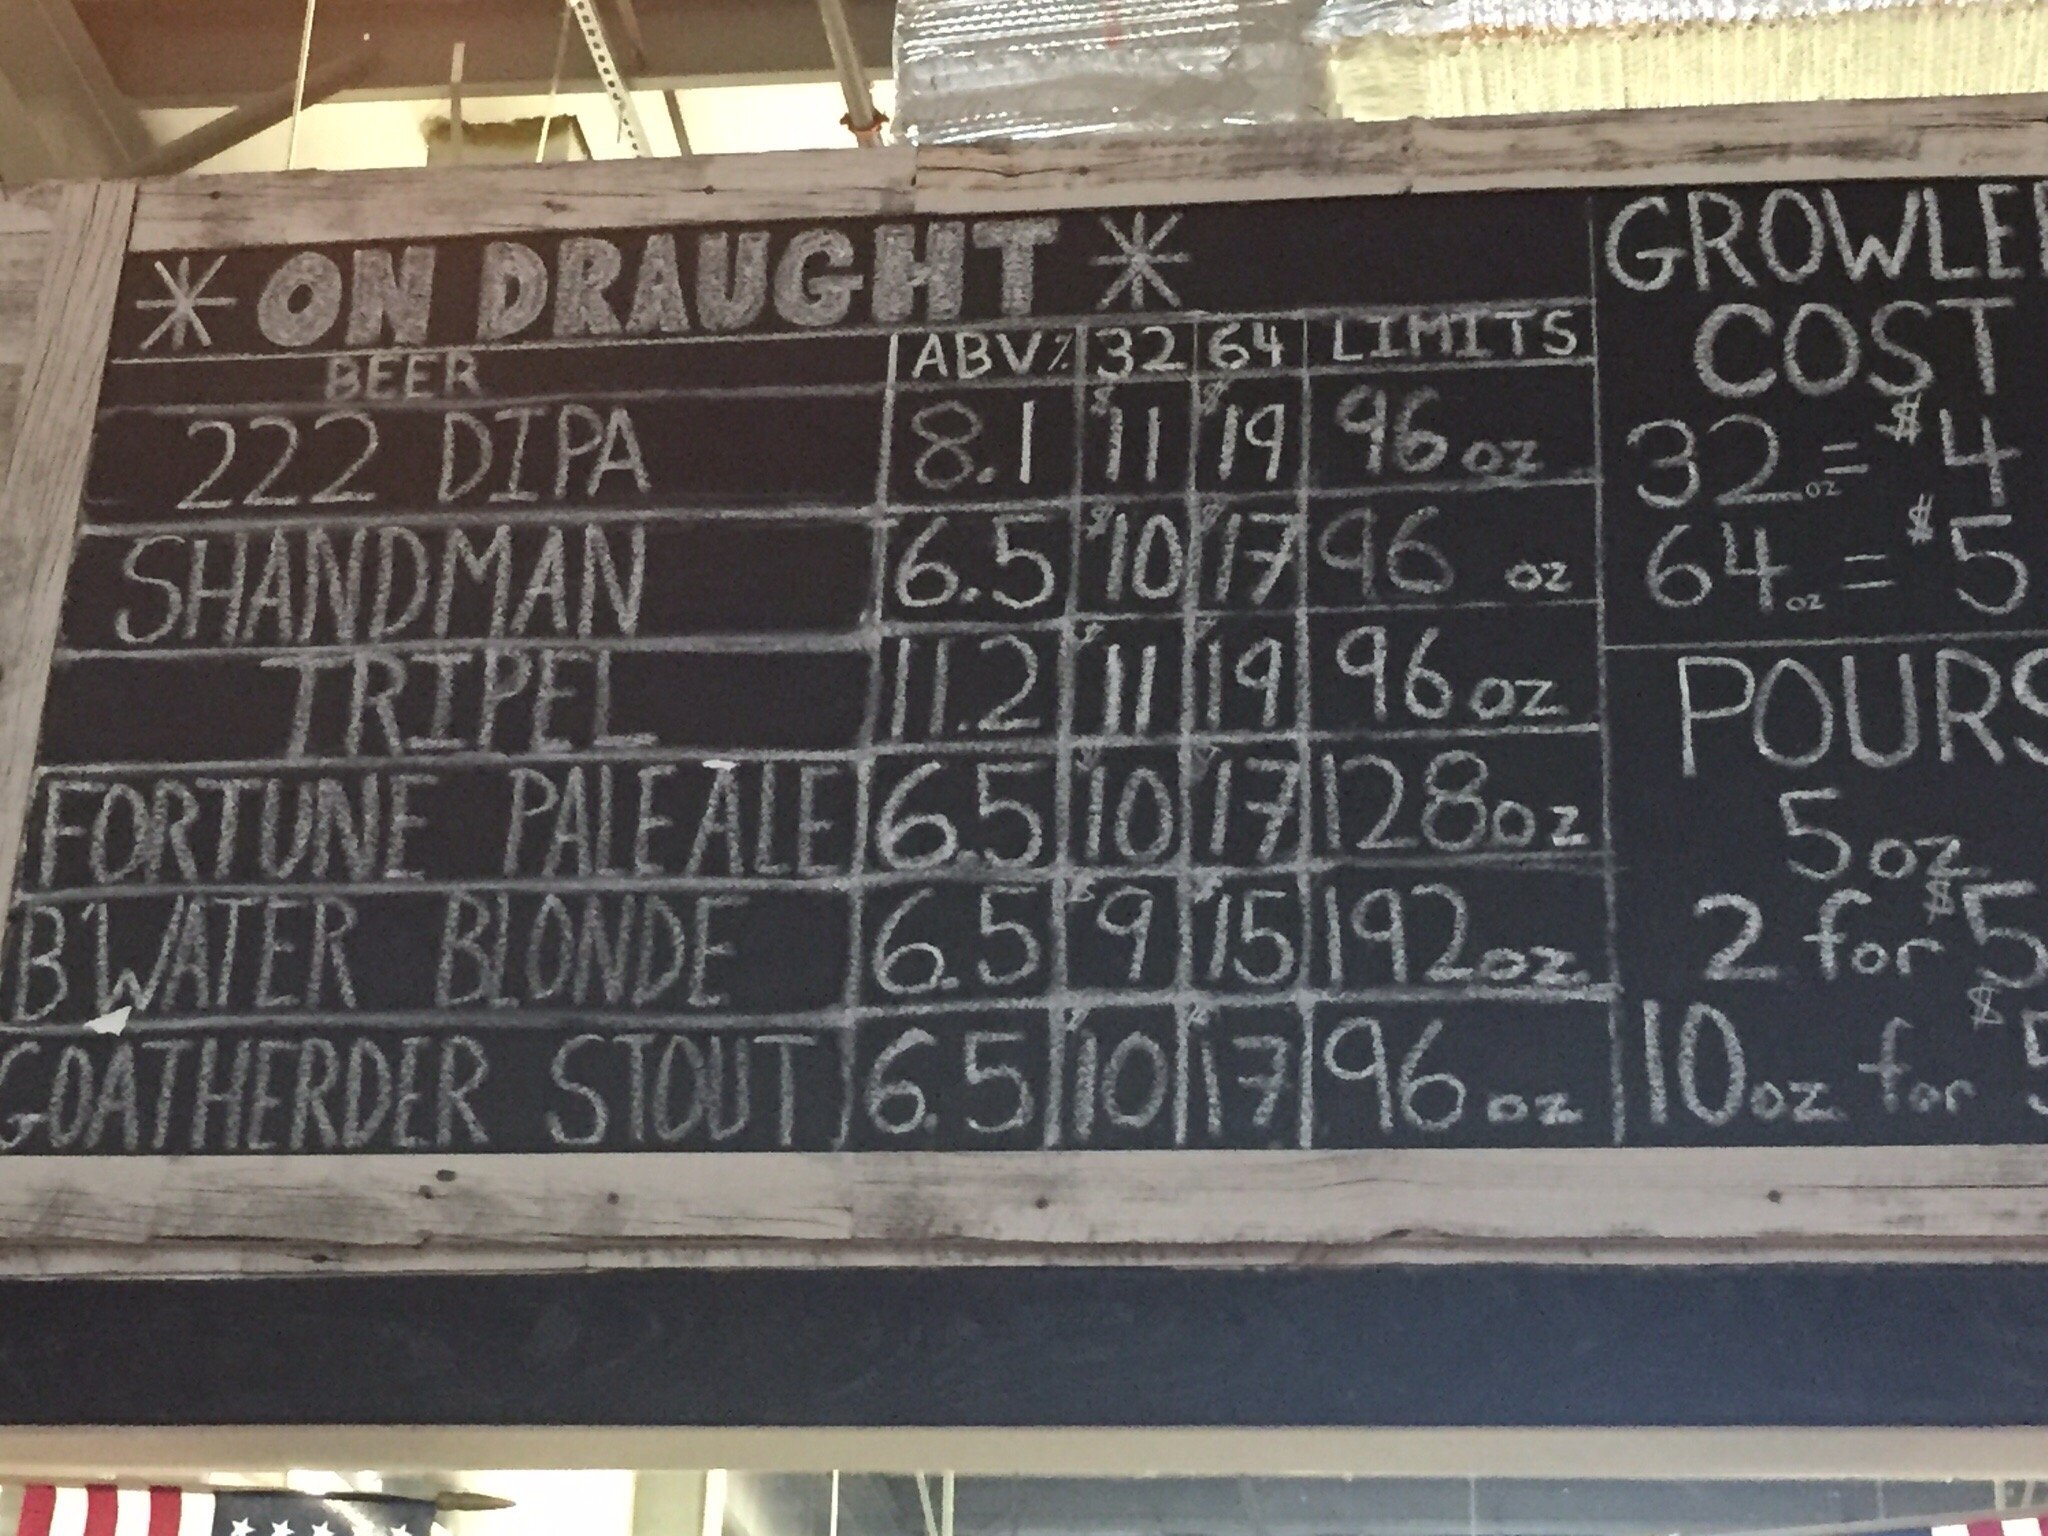 * ON DRAUGHT *
BEER ABV% 32 64 LIMITS
222 DIPA 8.1 $11 $19 96 oz
SHANDMAN 6.5 $10 $17 96 oz
TRIPEL 11.2 $11 $19 96 oz
FORTUNE PALE ALE 6.5 $10 $17 128 oz
B'WATER BLONDE 6.5 $9 $15 192 oz
GOATHERDER STOUT 6.5 $10 $17 96 oz
GROWLE
COST
32 oz = $4
64 oz = $5
POURS
5 oz
2 for $5
10 oz for $5